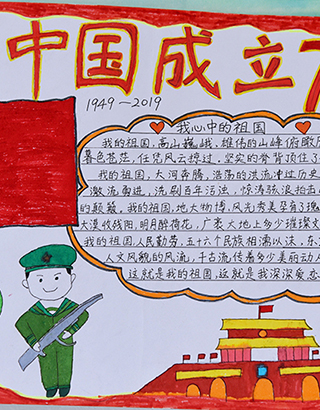 中国成立7
1949—2019
我心中的祖国
我的祖国,高山巍峨,雄伟的山峰俯瞰历
暮色苍茫,任凭风云掠过,坚实的脊背顶住了
我的祖国,大河奔腾,浩荡的洪流冲过历史
激流勇进,洗刷百年污浊,惊涛骇浪拍击
的颠簸。我的祖国,地大物博,风光秀美孕育了瑰
大漠收残阳,明月醉荷花,广袤大地上多少璀璨文
我的祖国,人民勤劳,五十六个民族相濡以沫,东
人文风貌的风流,千古流传着多少美丽动人
这就是我的祖国,这就是我深深爱恋